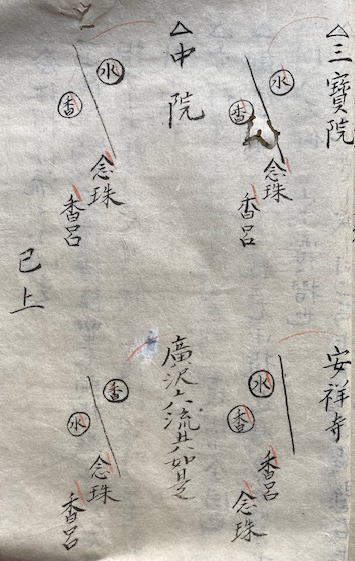 △三寶院
水
香
念珠
香呂
安祥寺
水
香
香呂
念珠
△中院
水
香
念珠
香呂
廣沢六流共如是
香
水
念珠
香呂
已上